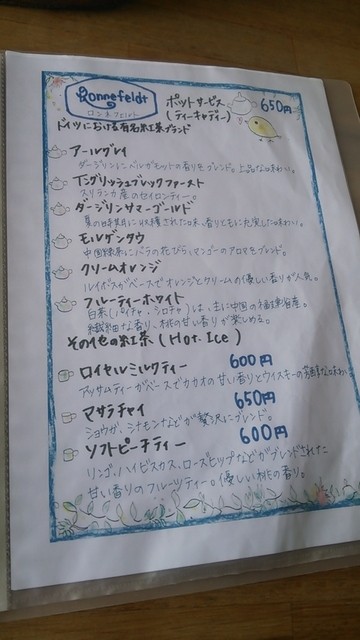 Ronnefeldt
ロンネフェルト
ポットサービス
(ティーキャディー)
650円
ドイツにおける有名紅茶ブランド
アールグレイ
ダージリンにベルガモットの香りをブレンド。上品な味わい。
イングリッシュブレックファースト
スリランカ産のセイロンティー。
ダージリンサマーゴールド
夏の時期に収穫された味、香りともに充実した味わい。
モルゲンタウ
中国緑茶にバラの花びら、マンゴーのアロマをブレンド。
クリームオレンジ
ルイボスがベースでオレンジとクリームの優しい香りが人気。
フルーティーホワイト
白茶(パイチャ、シロチャ)は、主に中国の福建省産。
繊細な香り、桃の甘い香りが楽しめる。
その他の紅茶 (Hot. Ice)
ロイヤルミルクティー 600円
アッサムティーがベースでカカオの甘い香りとウイスキーの芳醇な味わい
マサラチャイ 650円
ショウガ、シナモンなどが贅沢にブレンド。
ソフトピーチティー 600円
リンゴ、ハイビスカス、ローズヒップなどがブレンドされた
甘い香りのフルーツティー。優しい桃の香り。